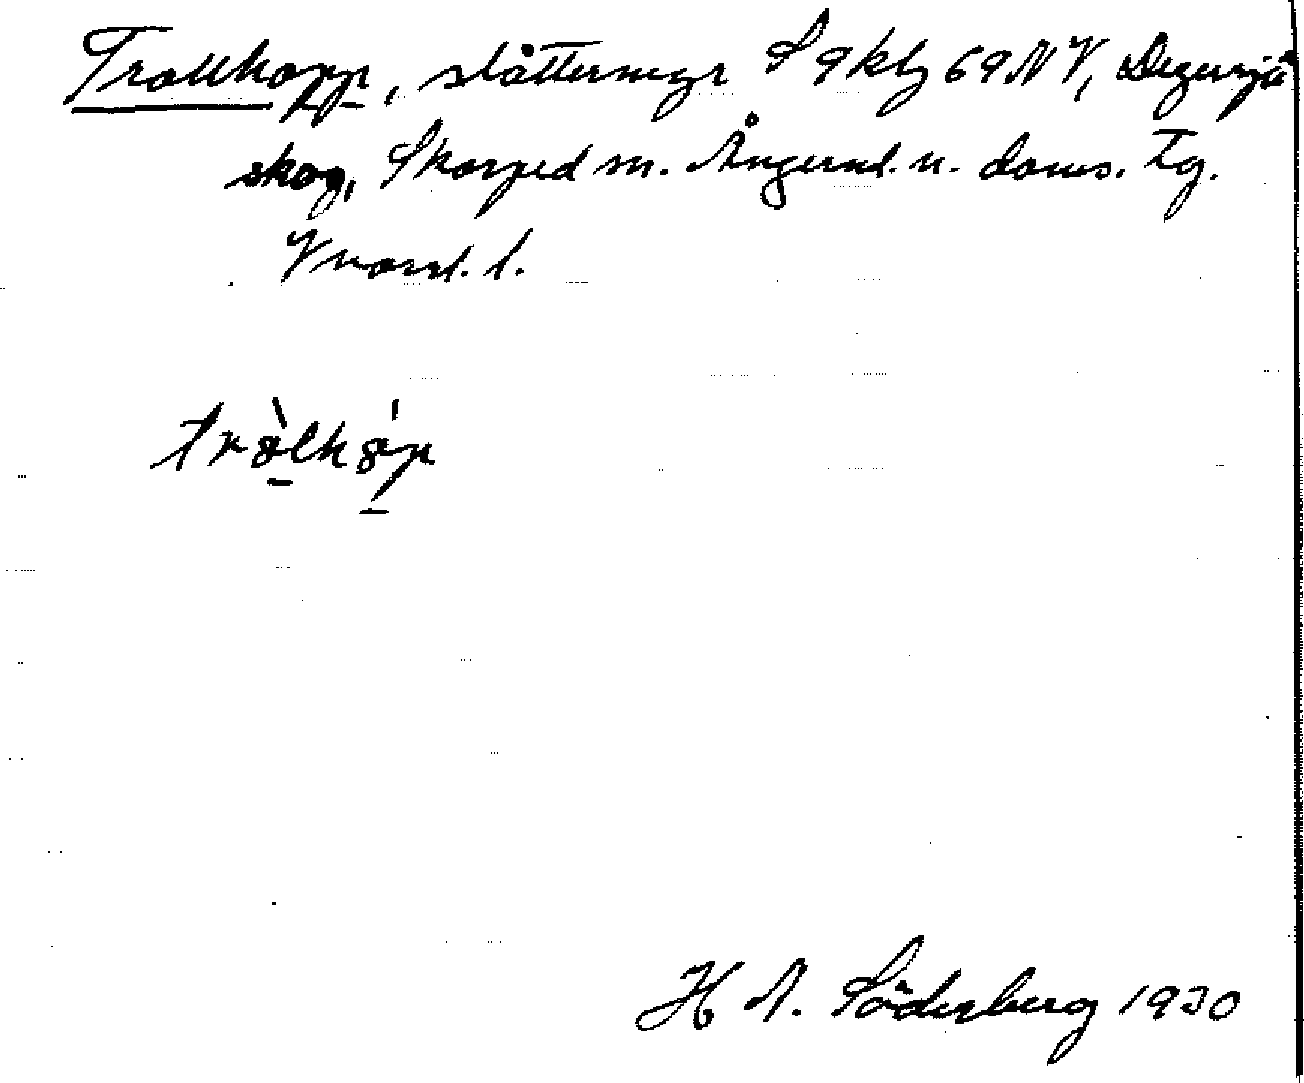 Trollkopp, slåttermyr S 9 kbl 69 NV, Degersjö
skog, Skorped sn. Ångerml. n. doms. tg.
V norrl. l.
tròlkóp
H N. Söderberg 1930